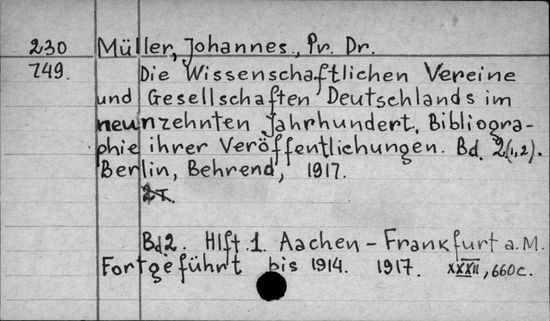 230 Müller, Johannes., Pr. Dr.
749. Die Wissenschaftlichen Vereine
und Gesellschaften Deutschlands im
neunzehnten Jahrhundert. Bibliogra-
phie ihrer Veröffentlichungen. Bd. 2(1,2).
Berlin, Behrend, 1917.
2 T.
Bd2. Hlft.1. Aachen – Frankfurt a.M.
Fortgeführt bis 1914. 1917. XXXII, 660c.